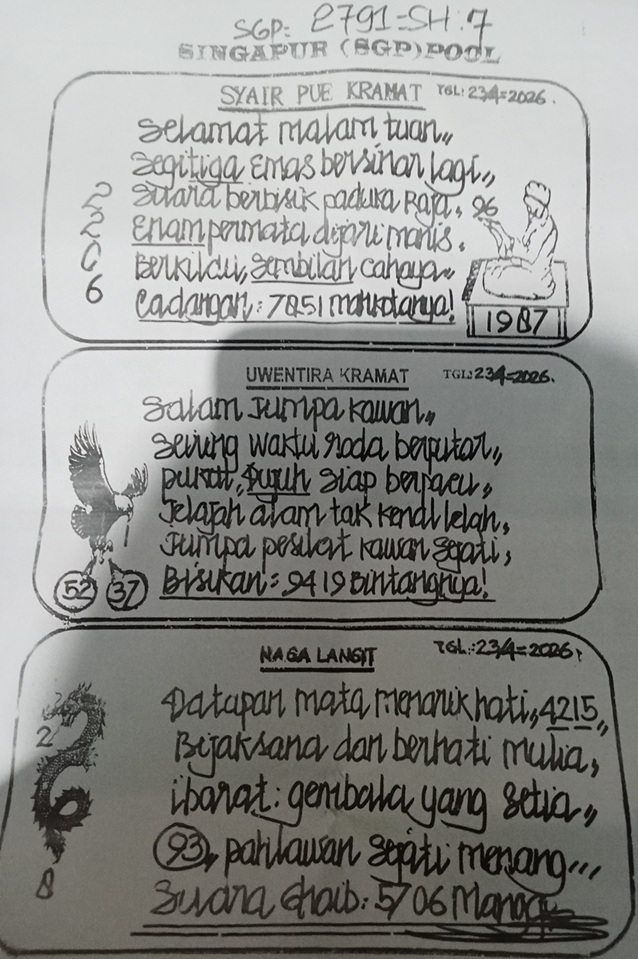 SGP: 2791=SH:7
SINGAPUR (SGP) POOL
SYAIR PUE KRAMAT TGL: 23/4=2026.
Selamat malam tuan,,
Segitiga Emas bersinar lagi,,
Suara berbisik paduka Raja, 96
Enam permata dijari manis.
Berkilau, sembilan cahaya
Cadangan: 7851 mahkotanya!
2
2
0
6
1987
UWENTIRA KRAMAT TGL: 23/4=2026.
Salam Jumpa kawan,,
Seiring waktu roda berputar,,
pukul, tujuh siap berpacu,,
Jelajah alam tak kenal lelah,
Jumpa pesilat kawan sejati,
Bisikan: 9419 Bintangnya!
52 37
NAGA LANGIT TGL: 23/4=2026.
Tatapan mata menarik hati,, 4215,,
Bijaksana dan berhati mulia,
ibarat: gembala yang setia,,
93, pahlawan sejati menang...
Suara Ghaib: 5706
2
8